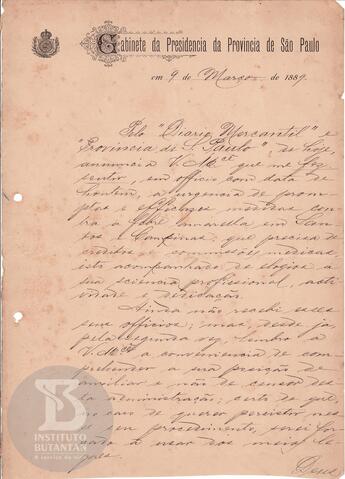 Gabinete da Presidencia da Provincia de São Paulo
em 9 de Março de 1889.
Pelo "Diario Mercantil" e
"Provincia de S. Paulo", de hoje,
annuncia V. Mcê que me fez
sentir, em officio com data de
hontem, a urgencia de promp-
ptas e efficazes medidas con-
tra a febre amarella em San-
tos e Campinas; que precisa de
creditos e commissões medicas,
isto acompanhado de elogios a
sua sciencia profissional, acti-
vidade e dedicação.
Ainda não recebi esses
seus officios; mas, desde já,
pela segunda vez, lembro a
V. Mcê a conveniencia de com-
prehender a sua posição de
auxiliar e não de censor des-
ta administração; certo de que
no caso de querer persistir nes-
se seu procedimento, serei for-
çado a usar dos meios le-
gaes.
Deus
INSTITUTO
BUTANTAN
A serviço da vida